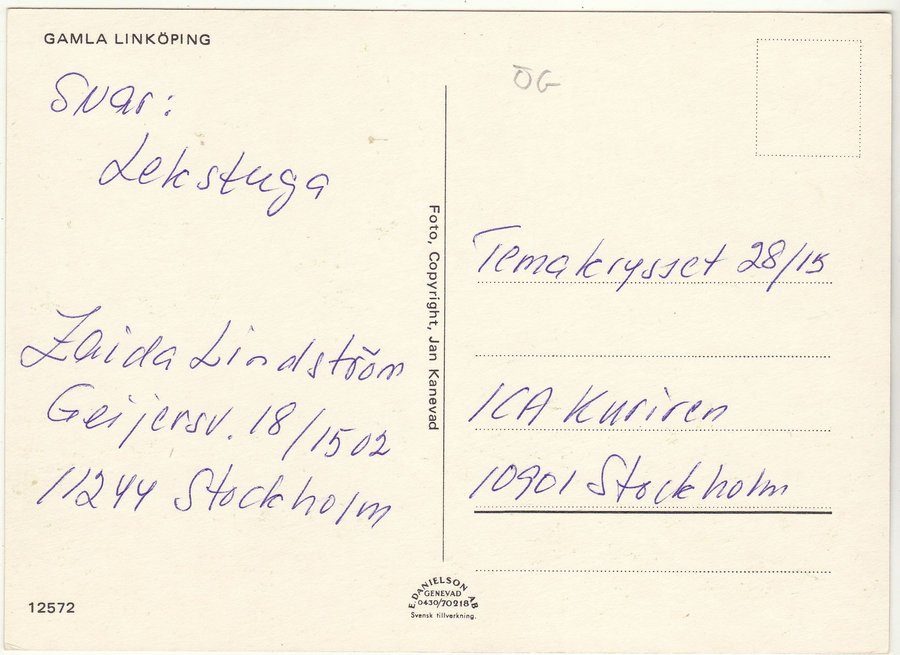 GAMLA LINKÖPING
Svar:
Lekstuga
Zaida Lindström
Geijersv. 18/1502
11244 Stockholm
12572
Foto, Copyright, Jan Kanevad
E. DANIELSON AB
GENEVAD
0430/70218
Svensk tillverkning.
ÖG
Temakrysset 28/15
ICA Kuriren
10901 Stockholm